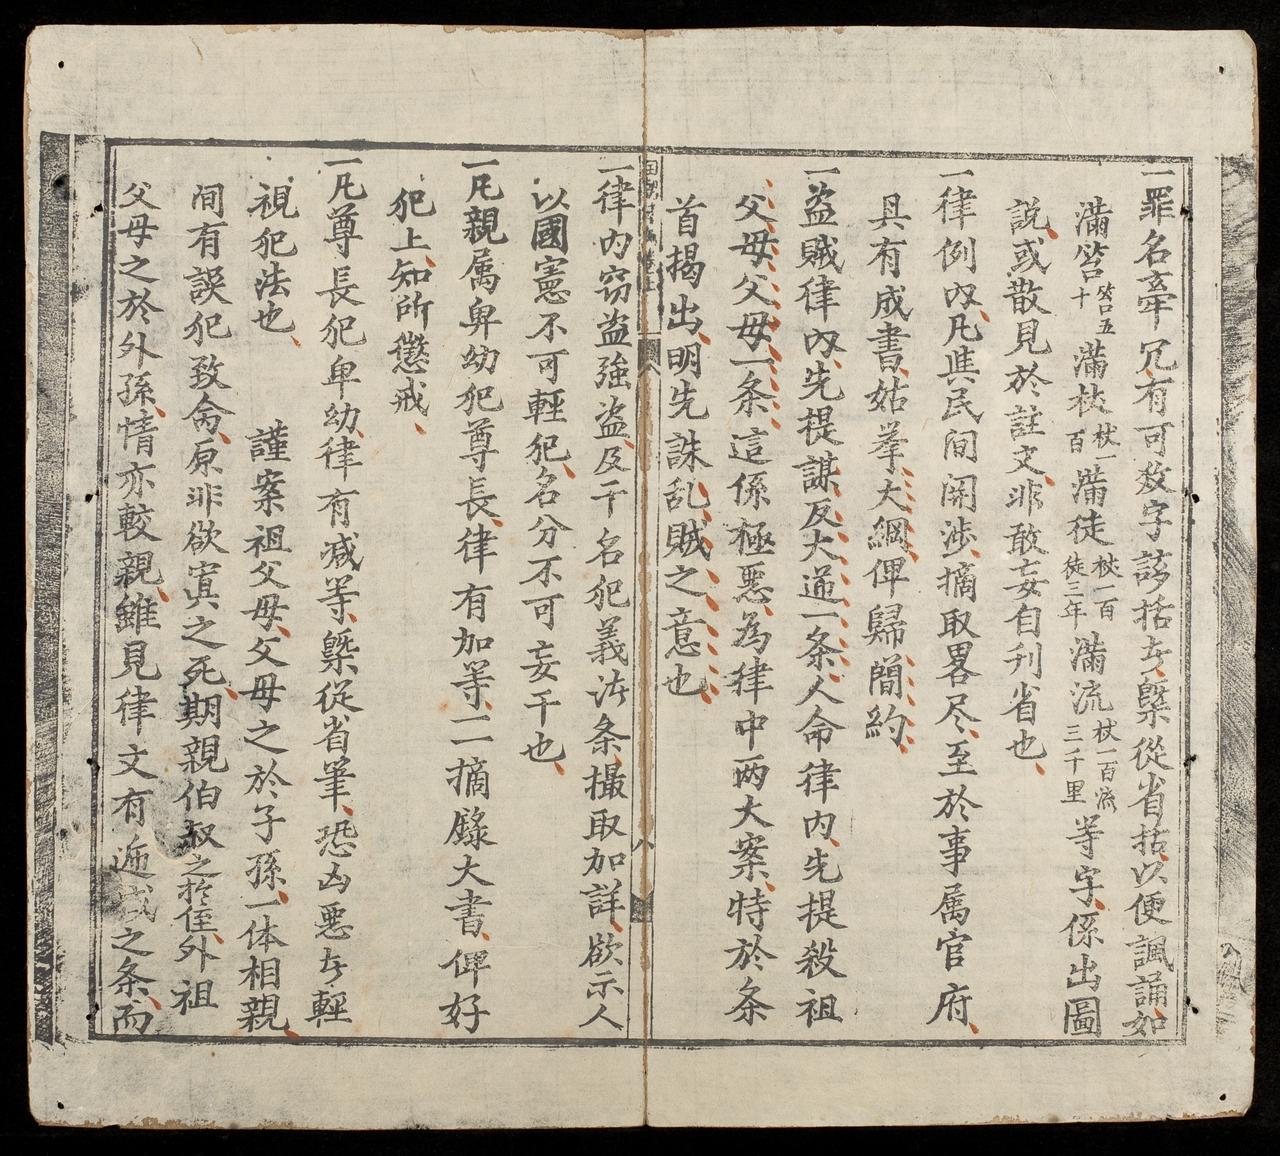 一罪名牽冗有可数字該括者槩從省括以便諷誦如
滿笞笞五十滿杖杖一百滿徒杖一百徒三年滿流杖一百流三千里等字係出圖
説或散見於註文非敢妄自刊省也
一律例內凡與民間開涉摘取畧尽至於事属官府
具有成書姑举大綱俾歸簡約
一盗賊律內先提謀反大逆一条人命律內先提殺祖
父母父母一条這係極悪為律中两大案特於条
首揭出明先誅乱賊之意也
一律內窃盗強盗及干名犯義諸条撮取加詳欲示人
以國憲不可輕犯名分不可妄干也
一凡親属卑幼犯尊長律有加等一一摘錄大書俾好
犯上知所懲戒
一凡尊長犯卑幼律有减等槩從省筆恐凶悪者輕
視犯法也 謹案祖父母父母之於子孫一体相親
間有誤犯致命原非欲寘之死期親伯叔之於侄外祖
父母之於外孫情亦較親雖見律文有逓减之条而
八